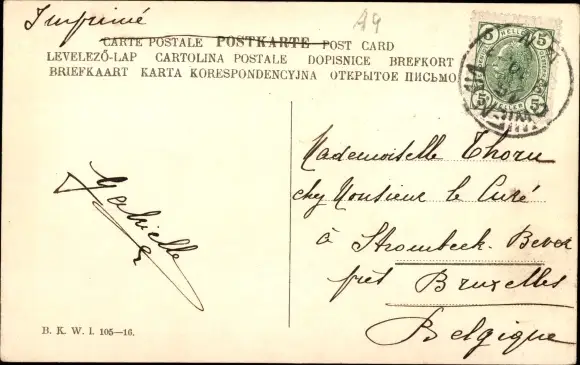 Imprimé
49
CARTE POSTALE POSTKARTE POST CARD
LEVELEZŐ-LAP CARTOLINA POSTALE DOPISNICE BREFKORT
BRIEFKAART KARTA KORESPONDENCYJNA ОТКРЫТОЕ ПИСЬМО
5 HELLER 5
5 HELLER 5
WIEN
Mademoiselle Thoru
chez Monsieur le Curé
à Strombeek-Bever
près Bruxelles
Belgique
Gabrielle
B. K. W. I. 105—16.